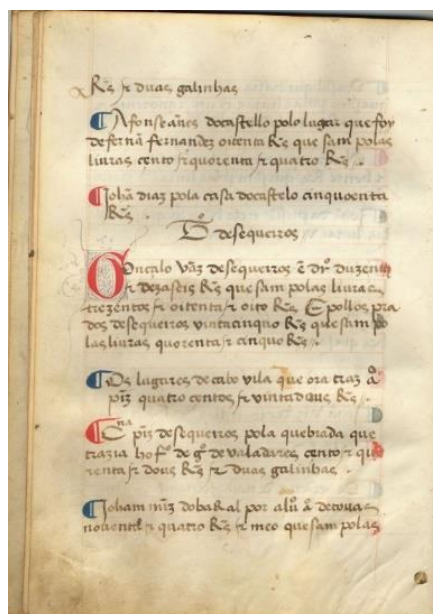 Rs̃ & duas galinhas
Afonse añes docastello polo lugar que foy
de fernã fernandez oitenta Rs̃ que sam polas
liuras cento & quorenta & quatro Rs̃
Johã diaz pola casa docastelo cinquoenta
Rs̃
de sequeiros
Gonçalo vãz de sequeiros ẽ drº duzent
& dezaseis Rs̃ que sam polas liuras
trezentos & oitenta & oito Rs̃ E pollos pra
dos de sequeiros vintacinquo Rs̃ que sam po
las liuras quorenta & cinquo Rs̃
Os lugares de cabo vila que ora traz
quatro centos & vinta dous Rs̃
de sequeiros pola quebrada que
trazia ho fº de gº de valadares cento & quo
renta & dous Rs̃ & duas galinhas
Joham por
& quatro Rs̃ & meo que sam polas